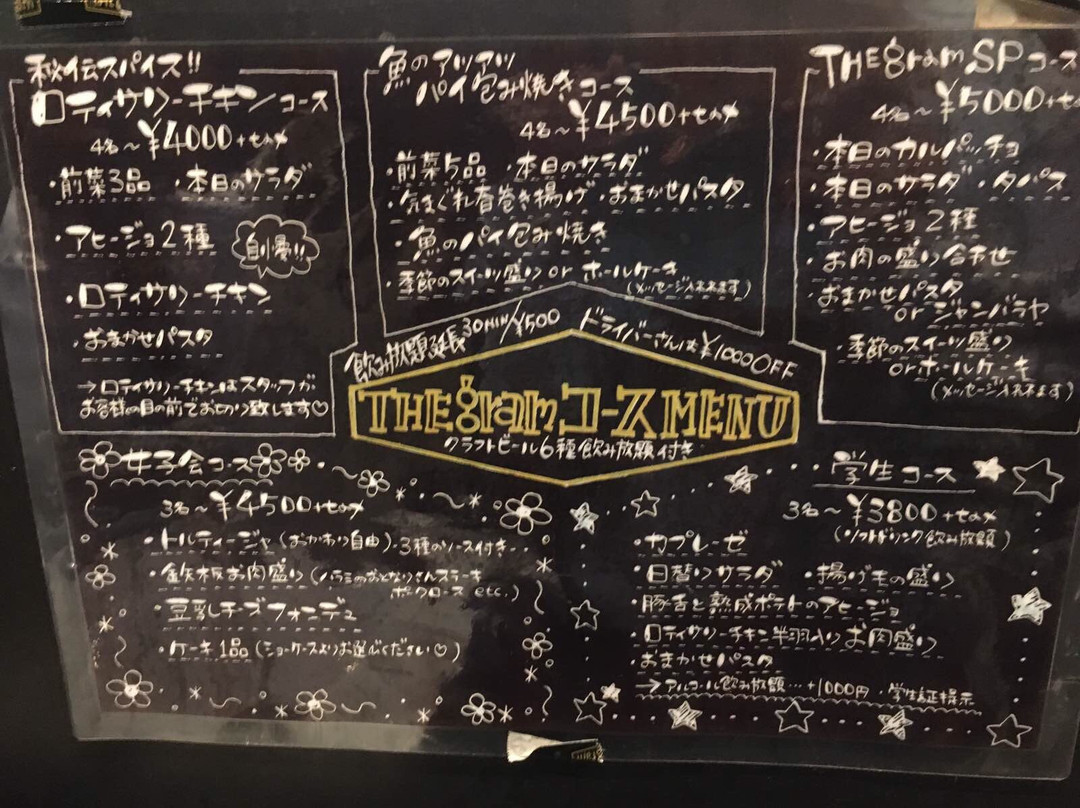 秘伝スパイス!!
ロティサリーチキンコース
4名〜¥4000+tax
・前菜3品 ・本日のサラダ
・アヒージョ2種
自慢!!
・ロティサリーチキン
・おまかせパスタ
→ロティサリーチキンはスタッフが
お客様の目の前でお切り致します♡
魚のアツアツ
パイ包み焼きコース
4名〜¥4500+tax
・前菜5品 ・本日のサラダ
・気まぐれ春巻き揚げ ・おまかせパスタ
・魚のパイ包み焼き
・季節のスイーツ盛り or ホールケーキ
(メッセージ入れれます)
THE gram SPコース
4名〜¥5000+ta
・本日のカルパッチョ
・本日のサラダ ・タパス
・アヒージョ2種
・お肉の盛り合わせ
・おまかせパスタ
or ジャンバラヤ
・季節のスイーツ盛り
or ホールケーキ
(メッセージ入れれます)
飲み放題延長30MIN/¥500
ドライバーさんは¥1000OFF
THE gram コースMENU
クラフトビール6種飲み放題付き
女子会コース
3名〜¥4500+tax
・トルティージャ(おかわり自由)・3種のソース付き
・鉄板お肉盛り(ハラミのおとなりさんステーキ
ポクロース etc.)
・豆乳チーズフォンデュ
・ケーキ1品(ショーケースよりお選びください♡)
学生コース
3名〜¥3800+tax
(ソフトドリンク飲み放題)
・カプレーゼ
・日替りサラダ ・揚げモの盛り
・豚舌と熟成ポテトのアヒージョ
・ロティサリーチキン半羽入り お肉盛り
・おまかせパスタ
→アルコール飲み放題…+1000円 ・学生証提示